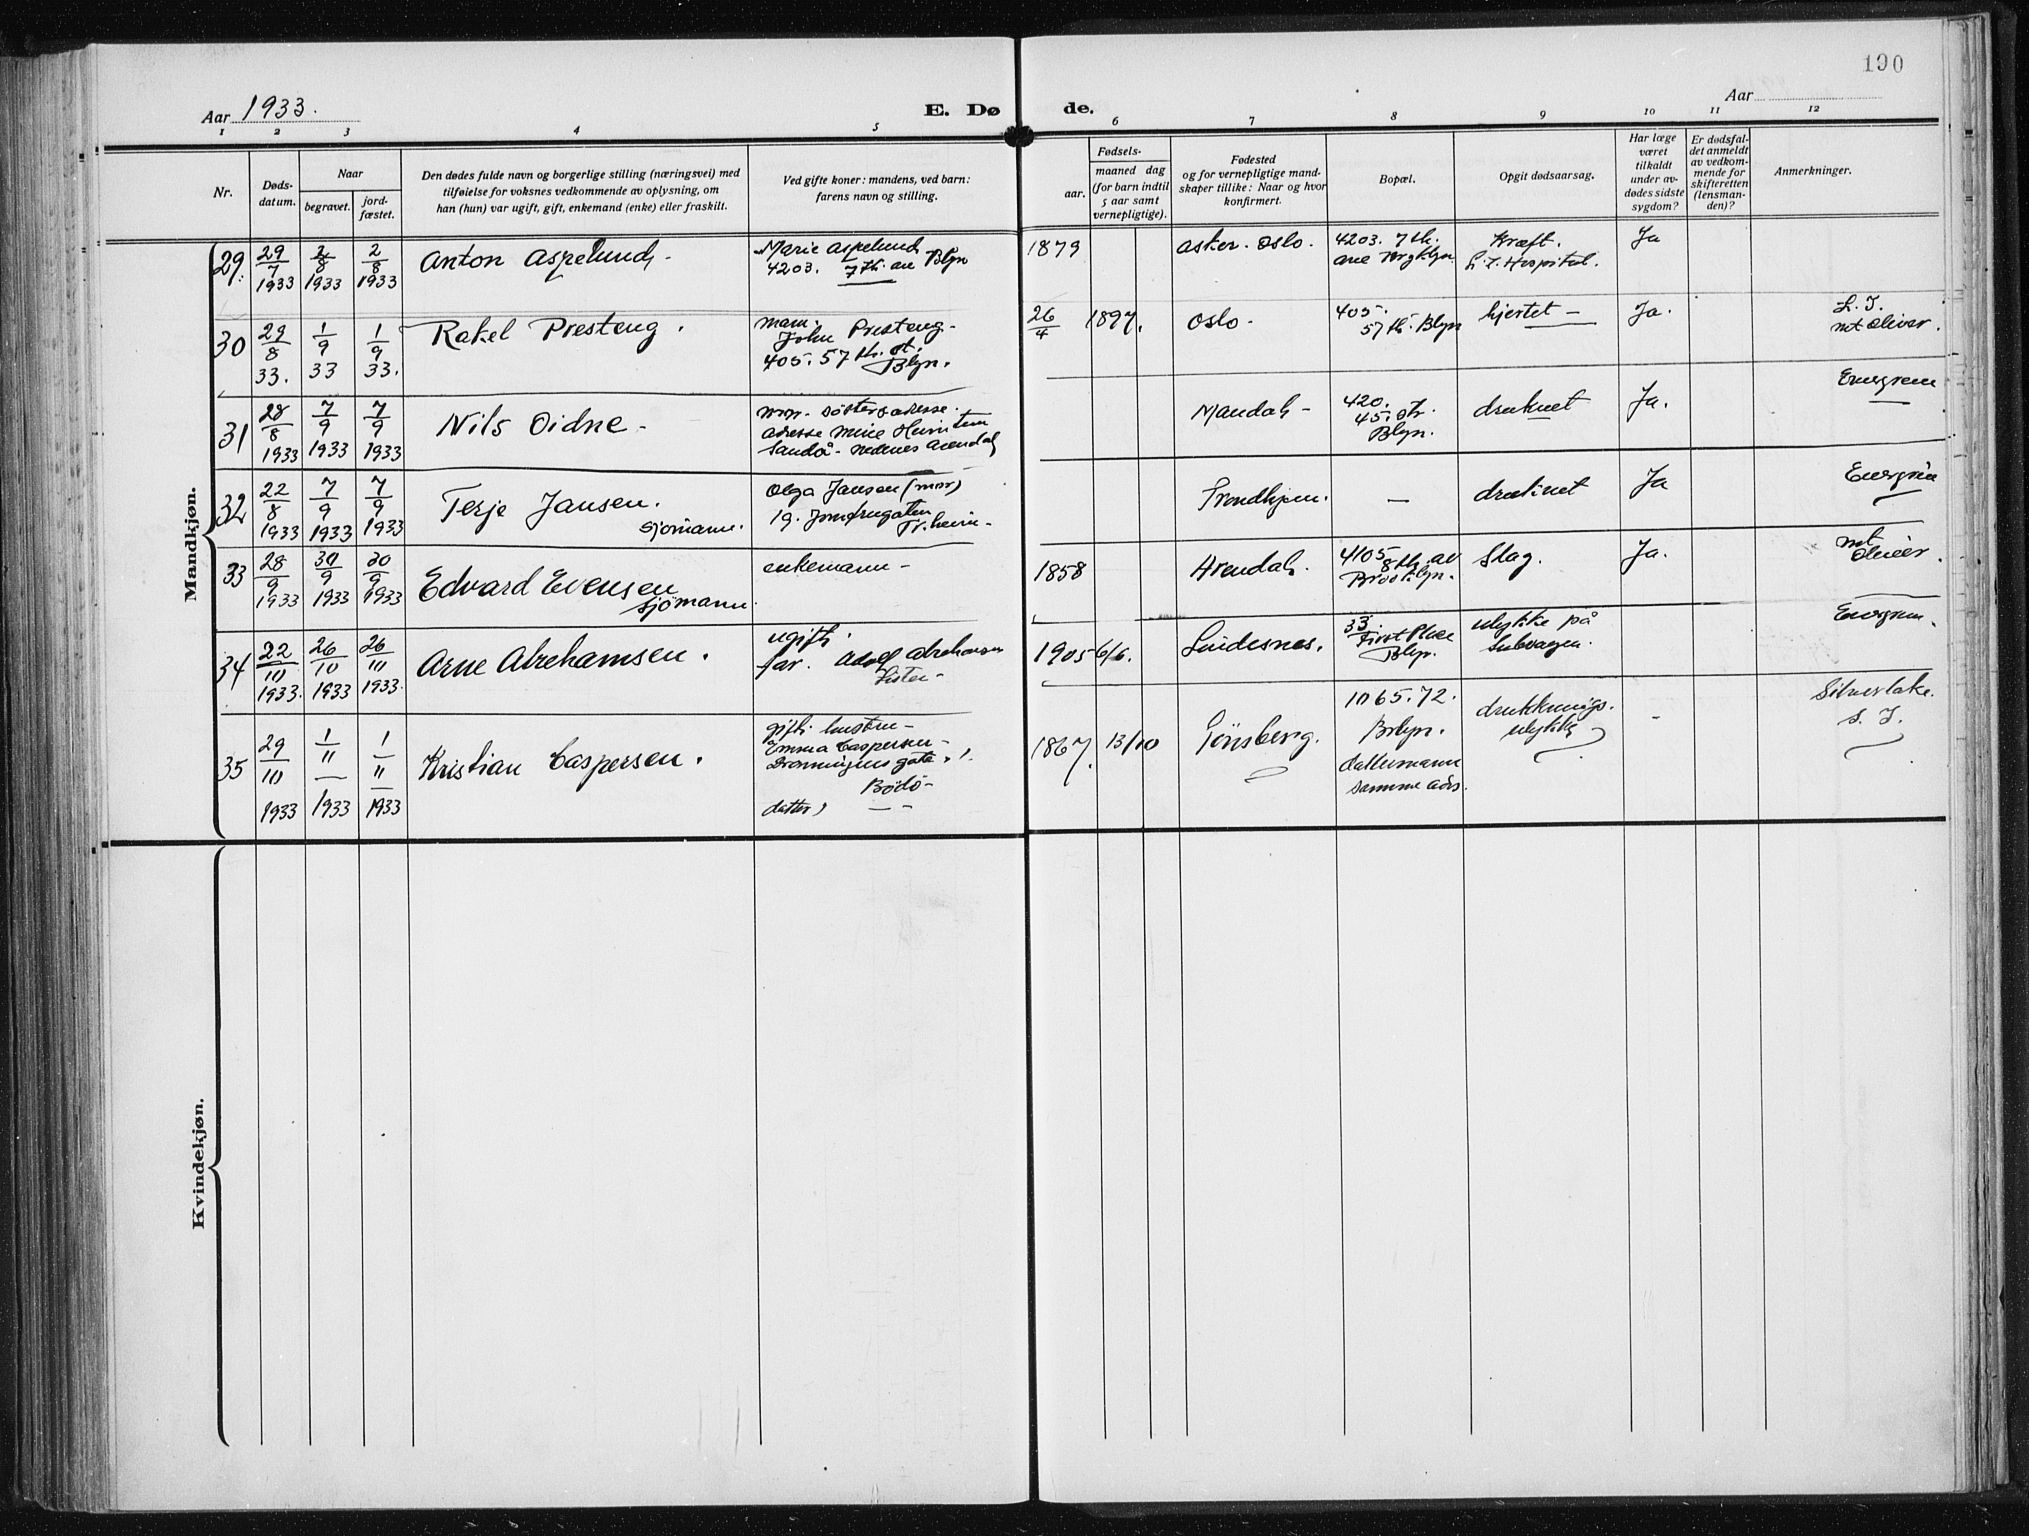 190
Aar 1933.
E. Dø
de.
Aar
1 2 3 4 5 6 7 8 9 10 11 12
Nr.
Døds-
datum.
Naar
begravet.
jord-
fæstet.
Den dødes fulde navn og borgerlige stilling (næringsvei) med
tilføielse for voksnes vedkommende av oplysning, om
han (hun) var ugift, gift, enkemand (enke) eller fraskilt.
Ved gifte koner: mandens, ved barn:
farens navn og stilling.
Fødsels-
aar.
maaned dag
(for barn indtil
5 aar samt
vernepligtige).
Fødested
og for vernepligtige mand-
skaper tillike: Naar og hvor
konfirmert.
Bopæl.
Opgit dødsaarsag.
Har læge
været
tilkaldt
under av-
dødes sidste
sygdom?
Er dødsfal-
det anmeldt
av vedkom-
mende for
skifteretten
(lensman-
den)?
Anmerkninger.
Mandkjøn.
29. 29/7 1933 2/8 1933 2/8 1933 Anton Aspelund - Marie Aspelund
4203. 7 th. ave Blyn
1879 Asker. Oslo. 4203. 7 th.
ave
Kræft.
Hospital.
Ja
30 29/8 33. 1/9 33 1/9 33. Rakel Presteng. mam.
John Presteng -
405. 57 th. st.
Blyn.
26/4 1897. Oslo - 405-
57 th. Blyn
hjertet - Ja.
mt Oliver.
31 28/8 1933 7/9 1933 7/9 1933 Nils Oidne -
adresse
Arendal
Mandal - 420.
45. str.
Blyn.
druknet Ja. Evergreen
32 22/8 1933 7/9 1933 7/9 1933 Terje Jansen.
sjømann.
Olga Jansen (mor)
19.
Tr.heim -
Trondhjem. - druknet Ja Evergreen
33 28/9 1933 30/9 1933 30/9 1933 Edvard Evensen
sjømann.
enkemann -
1858 Arendal. 4105 8 th. av
Brooklyn.
Slag. Ja. mt
Oliver.
34 22/10 1933. 26/10 1933 26/10 1933. Arne Abrehamsen. ugift.
far. Adolf Abrehamsen
Lister -
1905 6/6. Lindesnes. 33.
First Place
Blyn.
ulykke på
Subvagen.
Evergreen.
35 29/10 1933 1/11 1933 1/11 1933 Kristian Caspersen. gift. hustru -
Emma Caspersen -
Dronningens gate
Bodö -
datter,
1867. 13/10 Tönsberg. 1065. 72.
Brlyn.
samme adrs.
druknings.
ulykke
- Silverlake.
S. I.
Kvindekjøn.